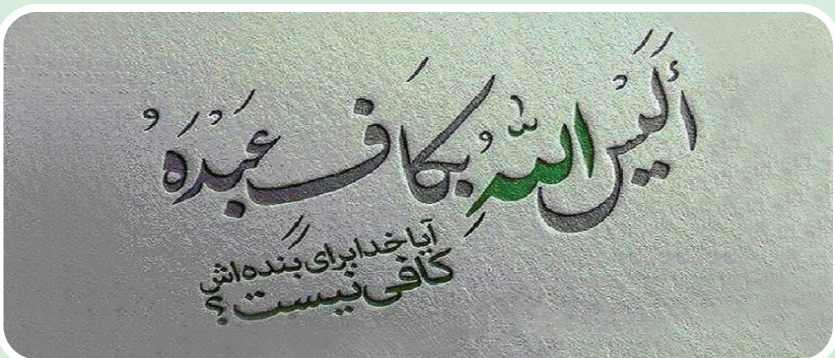 أَلَيْسَ اللَّهُ بِكَافٍ عَبْدَهُ
آیا خدا برای بنده‌اش
کافی نیست؟